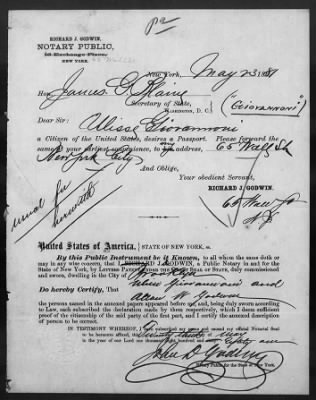 RICHARD J. GODWIN,
NOTARY PUBLIC,
18 Exchange Place,
NEW YORK.
New York, May 23 1881
Hon. James G. Blaine
Secretary of State,
WASHINGTON, D. C.
(Giovannoni)
Dear Sir:
Ulisse Giovannoni
a Citizen of the United States, desires a Passport. Please forward the
same at your earliest convenience, to my address, 65 Wall St
New York City
And Oblige,
Your obedient Servant,
RICHARD J. GODWIN.
65 Wall St
N.Y.
United States of America, STATE OF NEW YORK, ss.
By this Public Instrument be it Known, to all whom the same doth or
may in any wise concern, that I RICHARD J. GODWIN, a Public Notary in and for the
State of New York, by LETTERS PATENT UNDER THE GREAT SEAL OF STATE, duly commissioned
and sworn, dwelling in the City of Brooklyn
Do hereby Certify, That Ulisse Giovannoni and
Allan W
the persons named in the annexed papers appeared before me and, being duly sworn according to
Law, each subscribed the declaration made by them respectively, which I deem sufficient
proof of the citizenship of the said party of the first part, and I certify the annexed description
of person to be correct.
IN TESTIMONY WHEREOF, I have subscribed my name and caused my official Notarial Seal
to be hereunto affixed, this
year of our Lord one thousand eight hundred and eighty one
John
Notary Public for the State of New York.